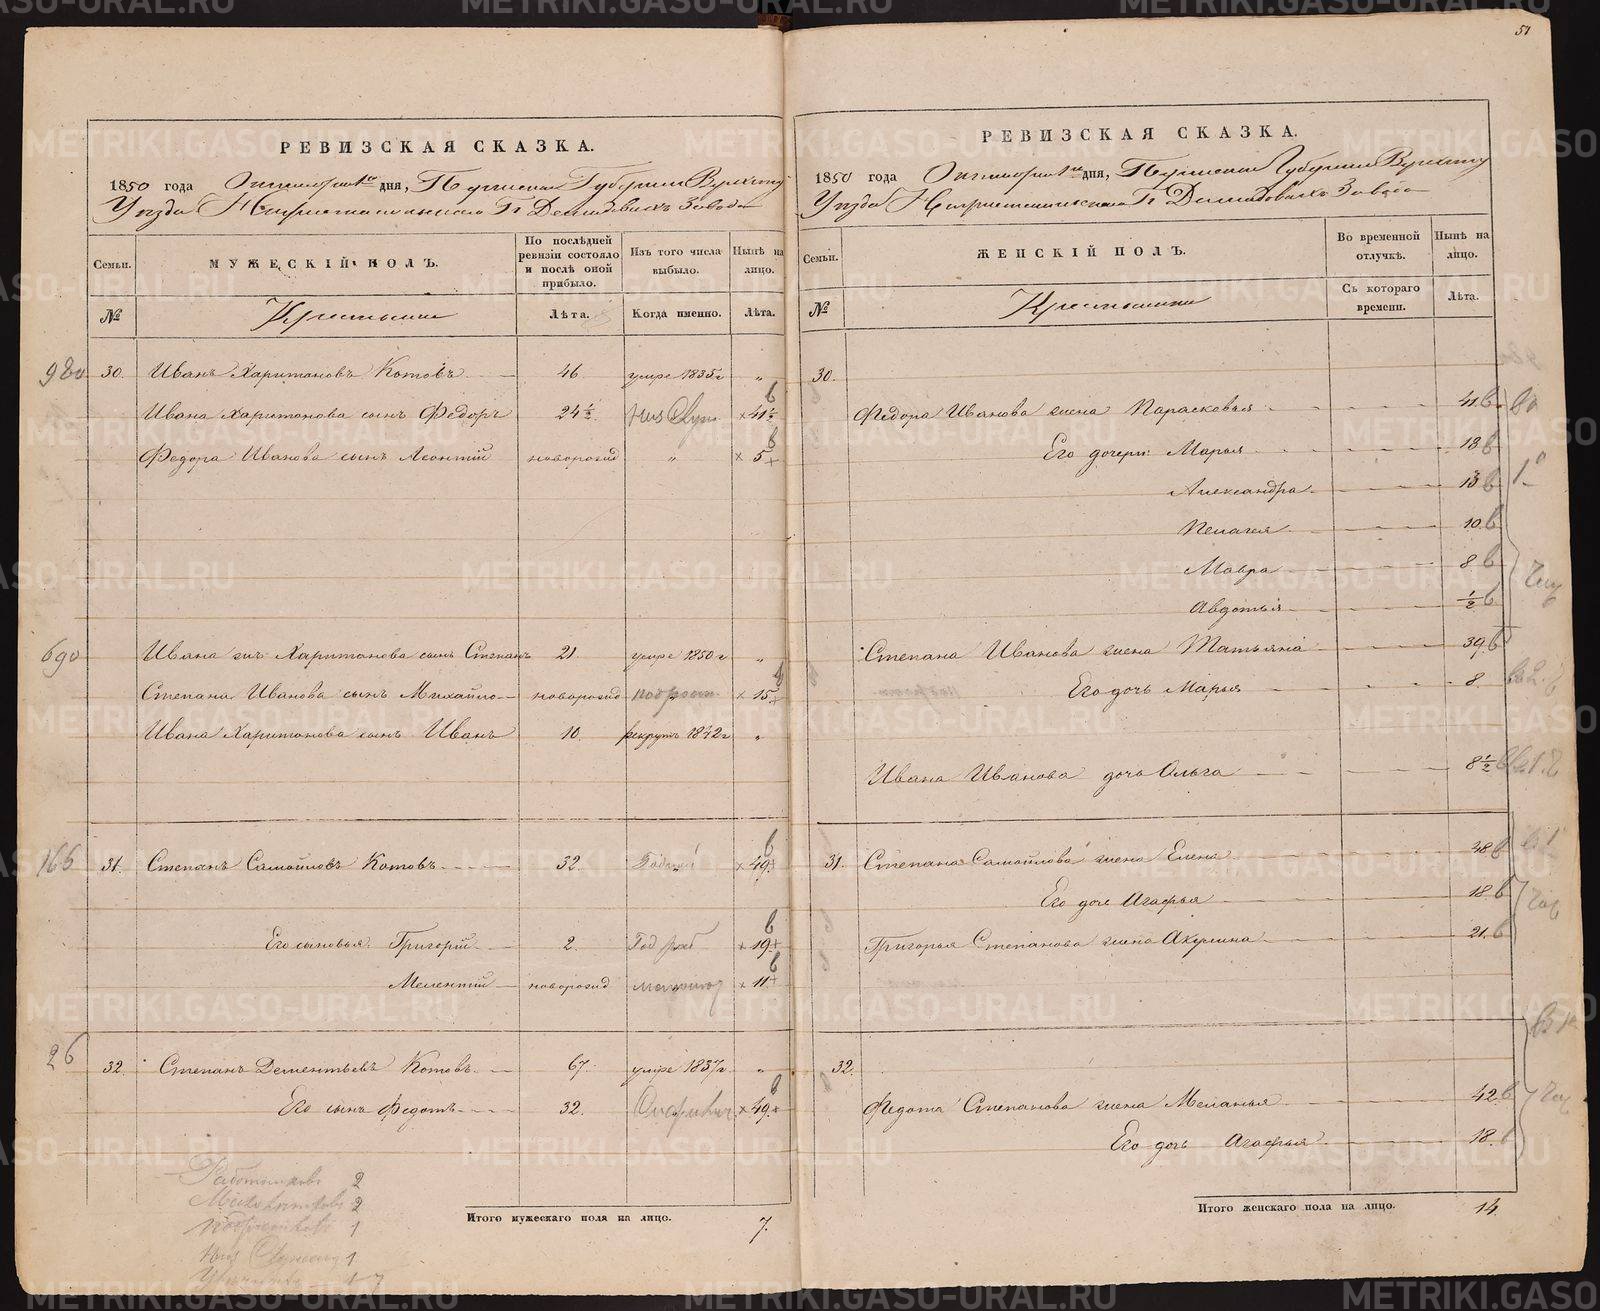 51
РЕВИЗСКАЯ СКАЗКА.
1850 года Октября 1го дня, Пермской Губернии Верхотур
Уѣзда Нижнетагильскаго Гг. Демидовыхъ Завода
Семьи. МУЖЕСКІЙ ПОЛЪ. По послѣдней ревизіи состояло и послѣ оной прибыло. Изъ того числа выбыло. Нынѣ на лицо.
№ Крестьяне Лѣта. Когда именно. Лѣта.
980 30. Иванъ Харитоновъ Котовъ 46 умре 1835 г "
Ивана Харитонова сынъ Федоръ 24 ½ × 41 ½ в
Федора Иванова сынъ Леонтій новорожд " × 5 в
690 Ивана Харитонова сынъ Степанъ 21 умре 1850 г "
Степана Иванова сынъ Михайло новорожд × 15 в
Ивана Харитонова сынъ Иванъ 10 рекрутъ 1842 г "
166 31. Степанъ Самойловъ Котовъ 32. × 49 в
Его сыновья Григорій 2. × 19 в
Мелентій новорожд × 11 в
26 32. Степанъ Дементьевъ Котовъ 67 умре 1837 г "
Его сынъ Федотъ 32. × 49 в
2
2
1
1
1 7
Итого мужескаго пола на лицо. 7.
РЕВИЗСКАЯ СКАЗКА.
1850 года Октября 1го дня, Пермской Губернии Верхотур
Уѣзда Нижнетагильскаго Гг. Демидовыхъ Завода
Семьи. ЖЕНСКІЙ ПОЛЪ. Во временной отлучкѣ. Нынѣ на лицо.
№ Крестьянки Съ котораго времени. Лѣта.
30.
Федора Иванова жена Параскевья 41 в
Его дочери: Марья 18 в
Александра 13 в
Пелагея 10 в
Мавра 8 в
Авдотья ½ в
Степана Иванова жена Татьяна 39 в
Его дочь Марья 8
Ивана Иванова дочь Ольга 8 ½ в
31. Степана Самойлова жена Елена 48 в
Его дочь Агафья 18 в
Григорья Степанова жена Акулина 21 в
32.
Федота Степанова жена Меланья 42 в
Его дочь Агафья 18
Итого женскаго пола на лицо. 14
METRIKI.GASO-URAL.RU